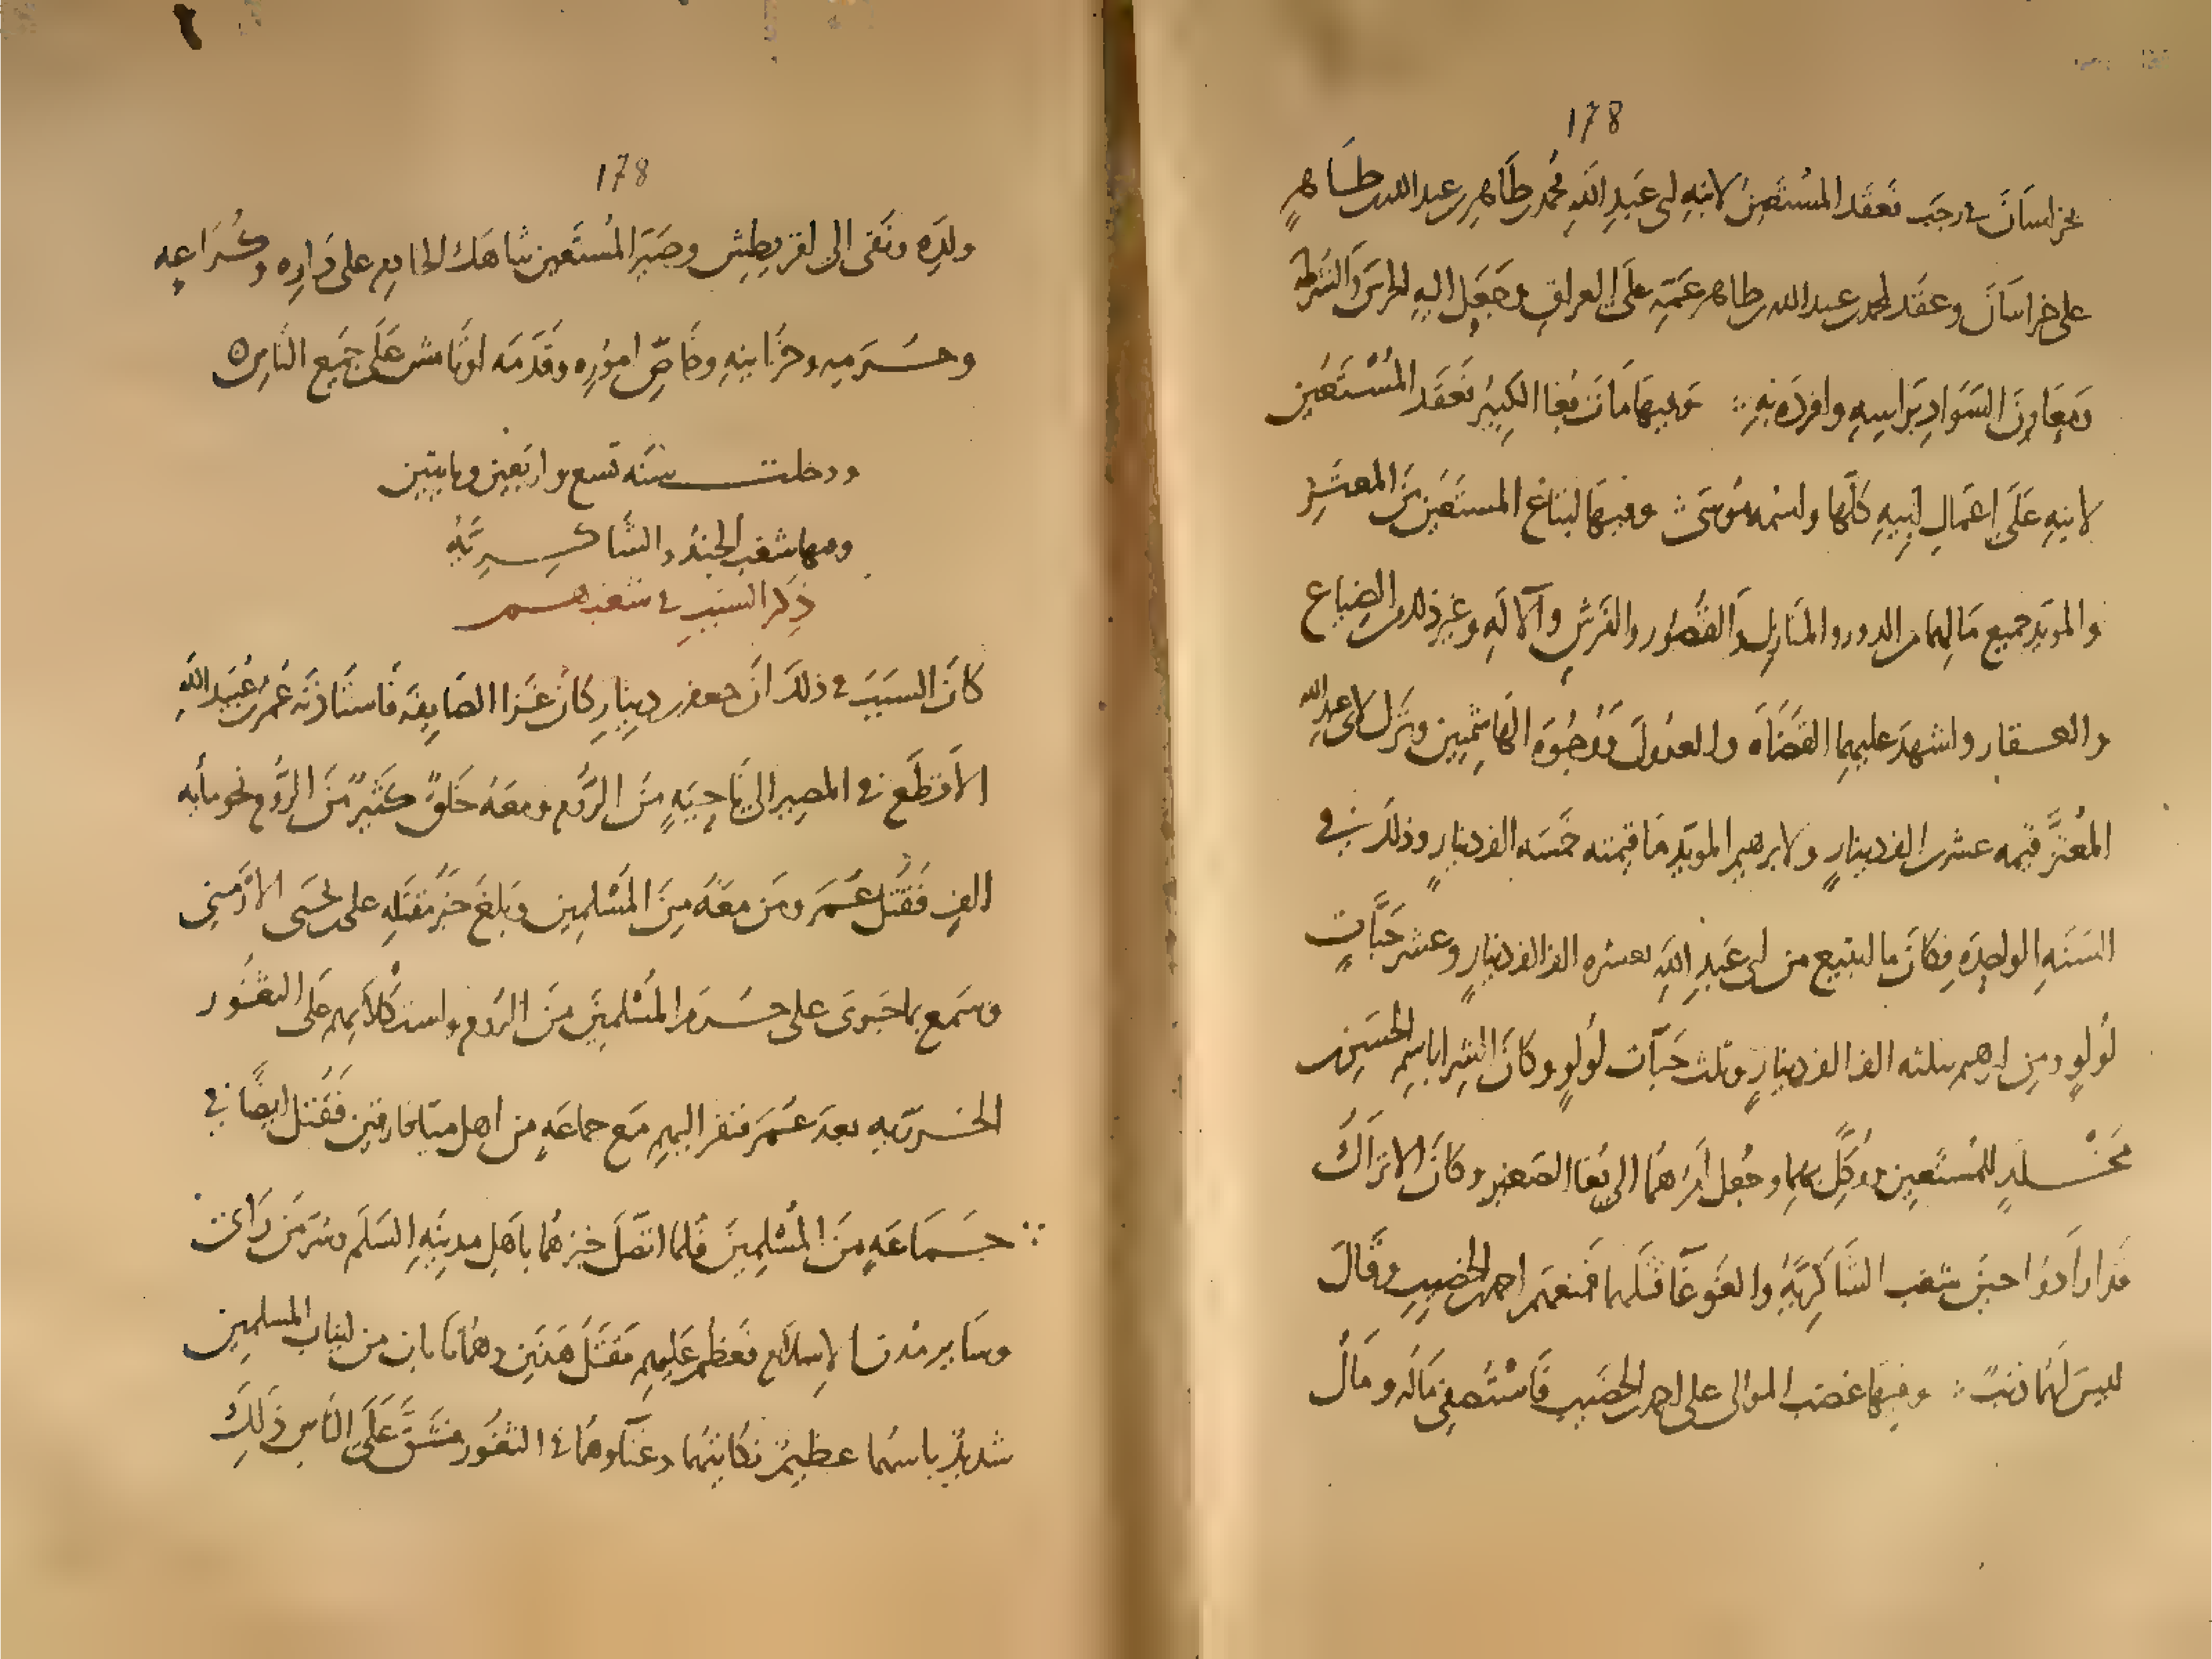 178
بخراسان في رجب فعقد المستعين لابنه ابى عبد الله محمد بن طاهر بن عبد الله بن طاهر
على خراسان وعقد لمحمد بن عبد الله بن طاهر عمه على العراق وجعل اليه الحرس والشرطة
ومعاون السواد براسه وافرده به ∴ وفيها مات بغا الكبير فعقد المستعين
لابنه على اعمال ابيه كلها واسمه موسى ∴ وفيها ابتاع المستعين من المعتز
والمويد جميع مالهما من الدور والمنازل والقصور والفرش والآلة وغير ذلك من الضياع
والعقار واشهد عليهما القضاة والعدول ووجوه الهاشميين وترك لابى عبد الله
المعتز قيمه عشرين الف دينار ولابرهيم المويد ما قيمته خمسه الف دينار وذلك في
السنه الواحدة فكان ما ابتيع من ابى عبد الله بعشره الف الف دينار وعشر حبات
لولو ومن ابرهيم بثلثه الف الف دينار وثلث حبات لولو وكان الشرا باسم الحسن بن
مخلد للمستعين ووكل بهما وجعل امرهما الى بغا الصغير وكان الاتراك
قد ارادوا حين شغب الشاكرية والغوغا قتلهما فمنعهم احمد بن الخصيب وقال
ليس لهما ذنب ∴ وفيها غضب الموالى على احمد بن الخصيب فاستصفى ماله ومال
178
ولده ونفى الى اقريطش وصير المستعين شاهك الخادم على داره وكراعه
وحرمه وخزاينه وخاص اموره وقدمه اوتامش على جميع الناس ه
ودخلت سنه تسع واربعين ومايتين
ومنها شغب الجند والشاكرية
ذكر السبب في شغبهم
كان السبب في ذلك ان جعفر بن دينار كان غزا الصايفه فاستاذنه عمر بن عبيد الله
الاقطع في المصير الى ناحية من الروم ومعه خلق كثير من الروم نحو مأيه
الف فقتل عمر ومن معه من المسلمين وبلغ خبر مقتله على بن يحيى الارمنى
وسمع بما حوى على حرم المسلمين من الروم واستكلابهم على الثغور
الخزرية بعد عمر فنفر اليهم مع جماعة من اهل ميافارقين فقتل ايضا في
جماعة من المسلمين فلما اتصل خبرهما باهل مدينه السلم وسر من راى
وساير مدن الاسلام فعظم عليهم مقتل هذين وهما نابان من انياب المسلمين
شديد باسهما عظيم نكايتهما وغناوهما في الثغور فشق على الناس ذلك